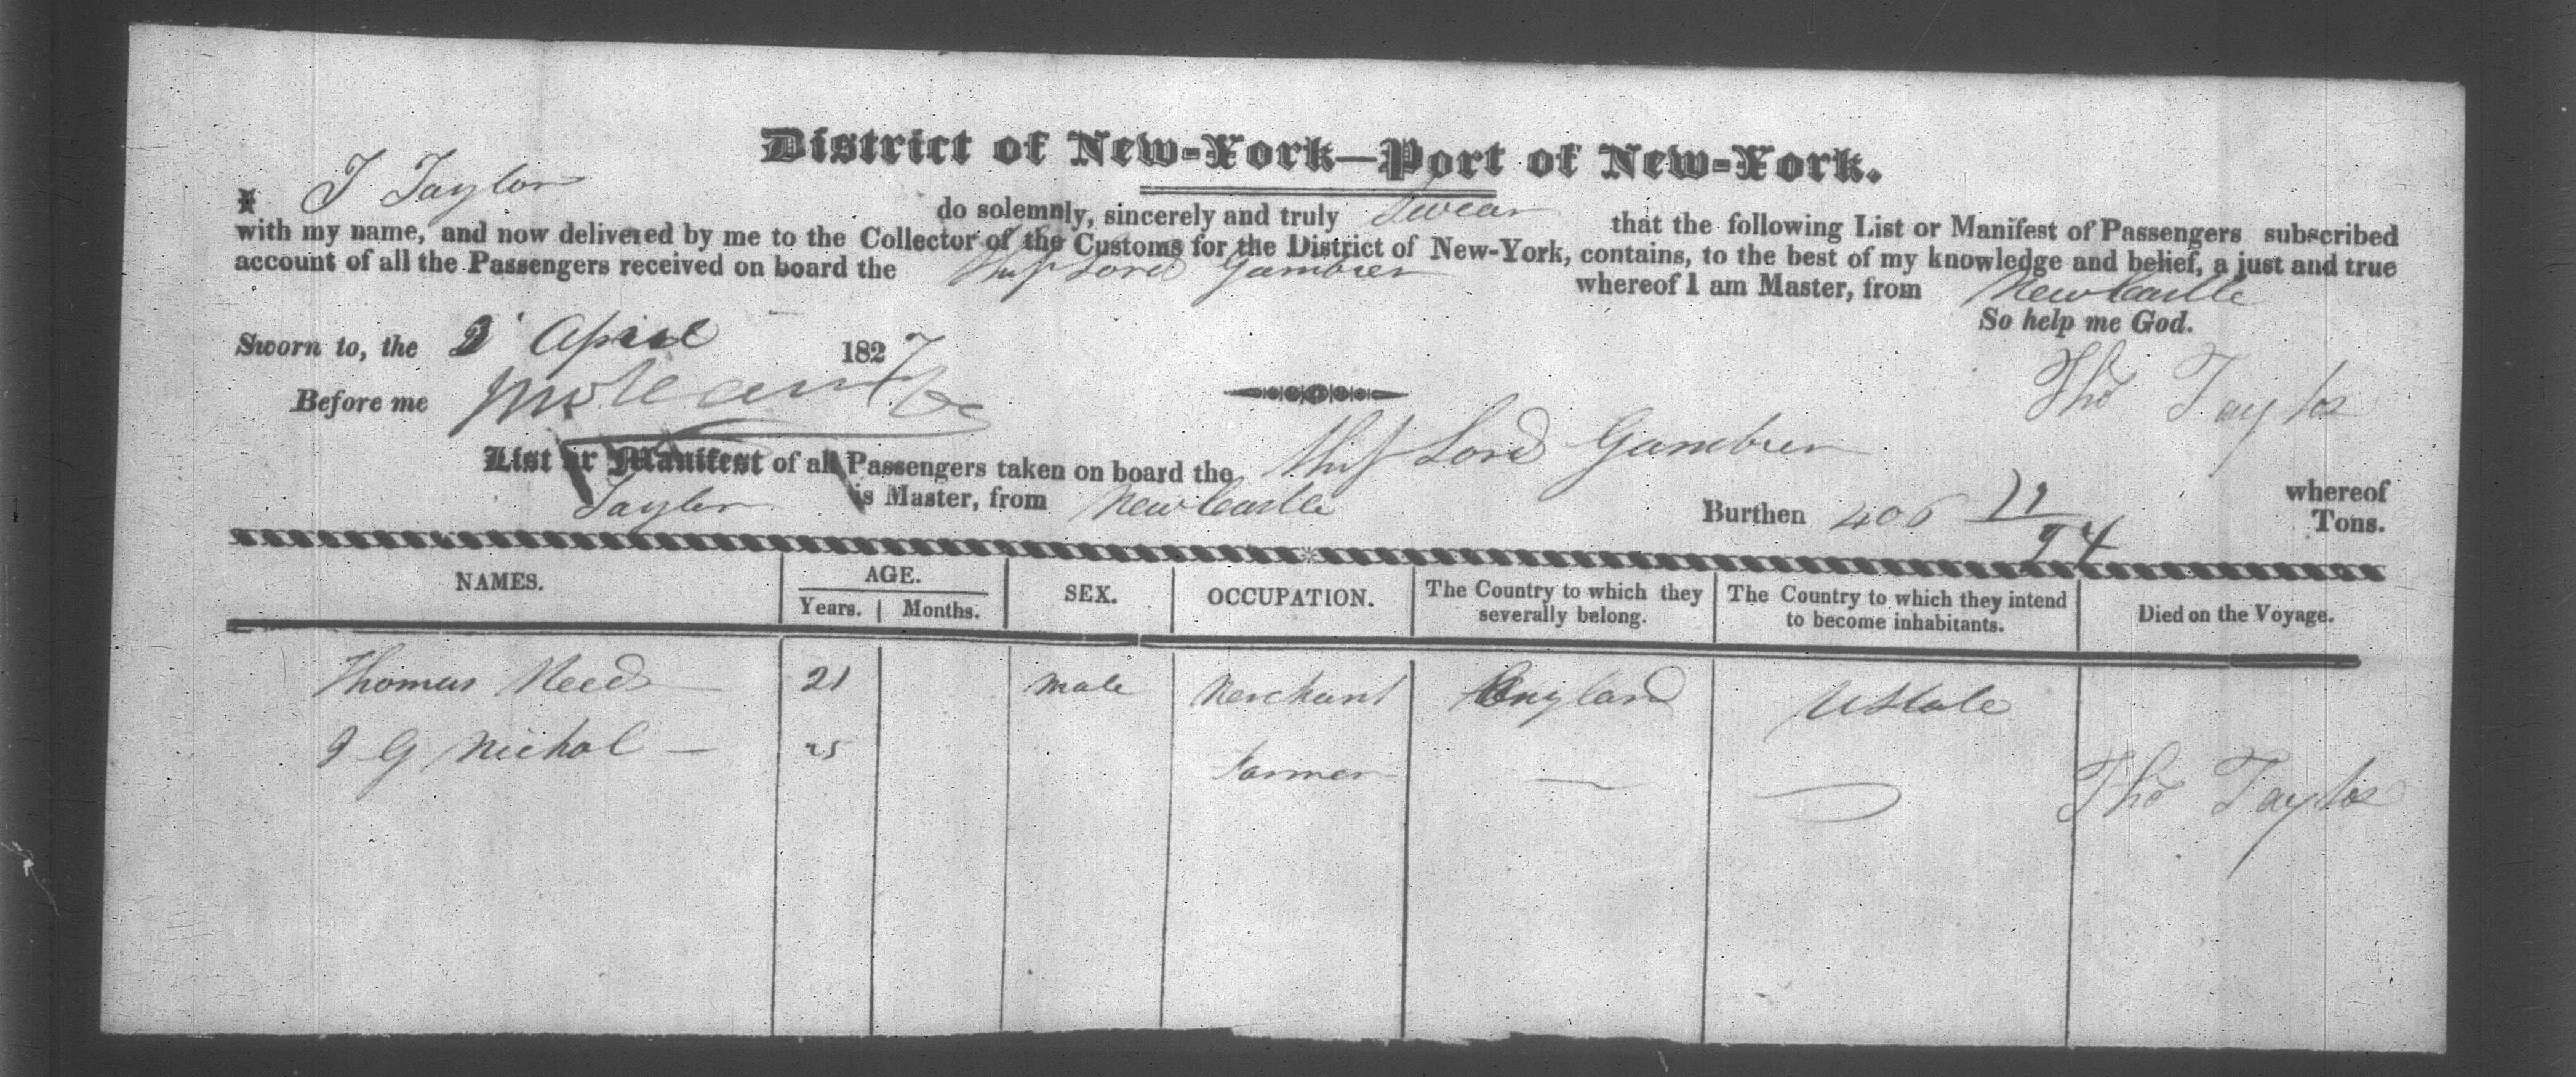 District of New-York—Port of New-York.
I T Taylor do solemnly, sincerely and truly Swear that the following List or Manifest of Passengers subscribed
with my name, and now delivered by me to the Collector of the Customs for the District of New-York, contains, to the best of my knowledge and belief, a just and true
account of all the Passengers received on board the Ship Lord Gambier whereof I am Master, from Newcastle
So help me God.
Sworn to, the 2 April 1827
Before me
Tho Taylor
List or Manifest of all Passengers taken on board the Ship Lord Gambier whereof
Taylor is Master, from Newcastle Burthen 406 /94 Tons.
NAMES. AGE. Years. Months. SEX. OCCUPATION. The Country to which they severally belong. The Country to which they intend to become inhabitants. Died on the Voyage.
Thomas 21 male Merchant England UState
J G Nichol — 25 farmer —
Tho Taylor